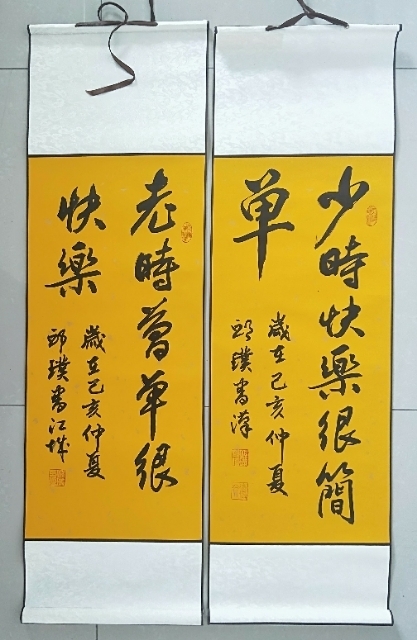 少時快樂很簡
单
歲在己亥仲夏
邱璞書漢
老時簡单很
快樂
歲在己亥仲夏
邱璞書江城